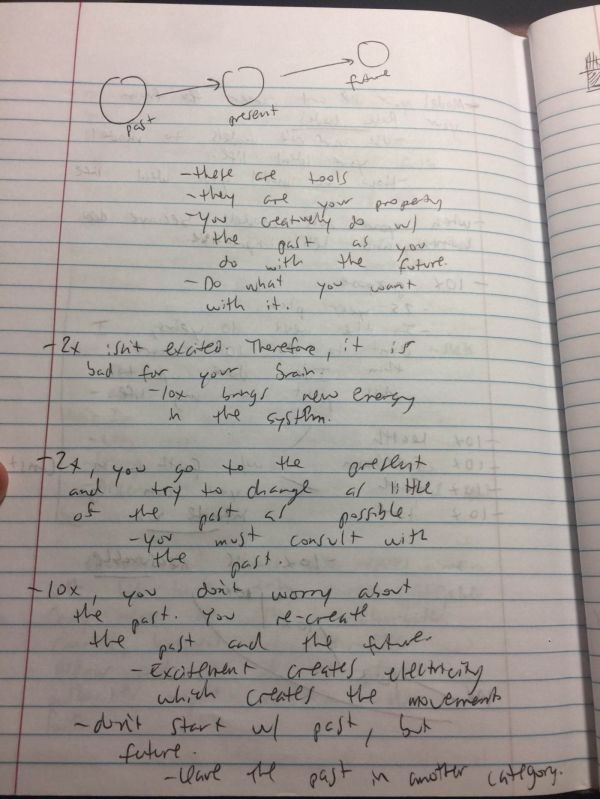 past
present
future
-these are tools
-they are your property
-You creatively do w/
the past as you
do with the future.
- Do what you want
with it.
-2x isn't excited. Therefore, it is
bad for your brain.
-10x brings new energy
in the system.
-2x, you go to the present
and try to change as little
of the past as possible.
-You must consult with
the past.
-10x, you don't worry about
the past. You re-create
the past and the future.
-Excitement creates electricity
which creates the movement
-don't start w/ past, but
future.
-leave the past in another category.